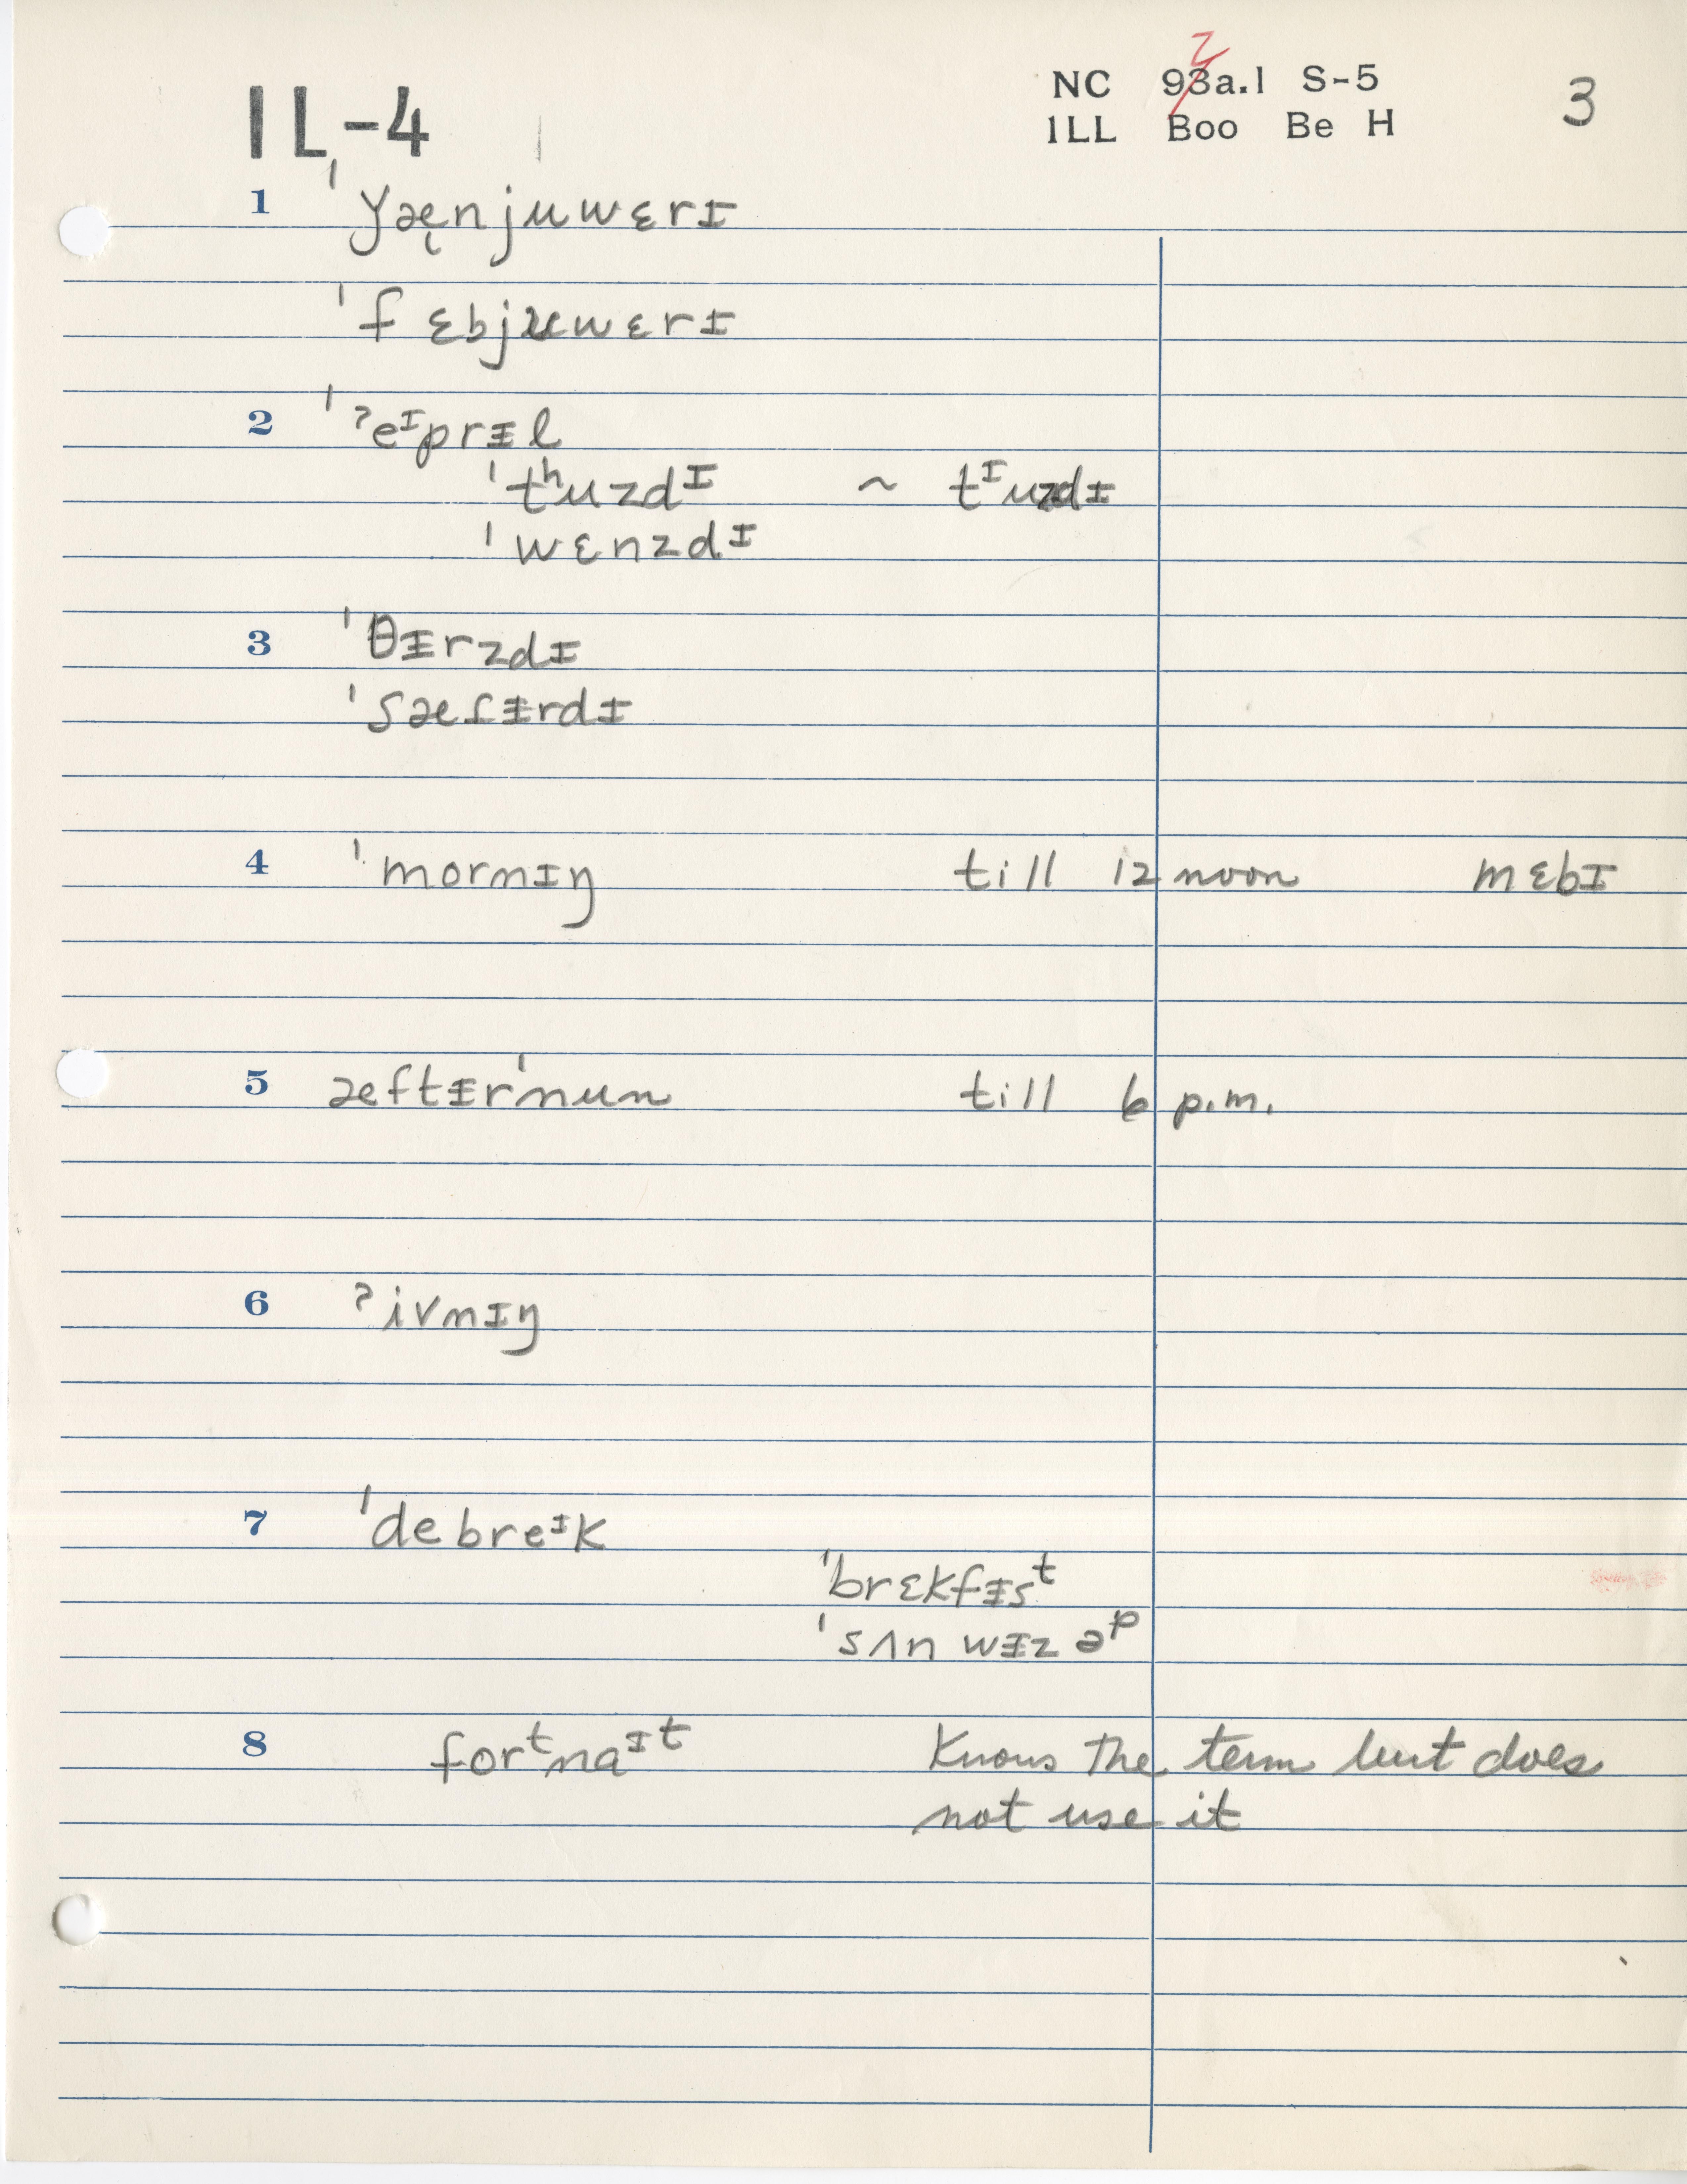 IL-4
NC 93a.1 S-5
2
ILL Boo Be H
3
1 ˈy̌æ̨njuwɛrɪ
ˈfɛbjuwɛrɪ
2 ˈʔeᶦprɨl
ˈtʰuzdᶦ ~ tᶦuzdɪ
ˈwɛnzdᶦ
3 ˈθɨrzdɪ
ˈsæɾɨrdɪ
4 ˈmornɪŋ till 12 noon mɛbɪ
5 æftɨrˈnun till 6 p.m.
6 ʔivnɪŋ
7 ˈdebreᶦk
ˈbrɛkfɨsᵗ
ˈsʌn wɨz əᵖ
8 forᵗnaᶦᵗ Knows the term but does
not use it